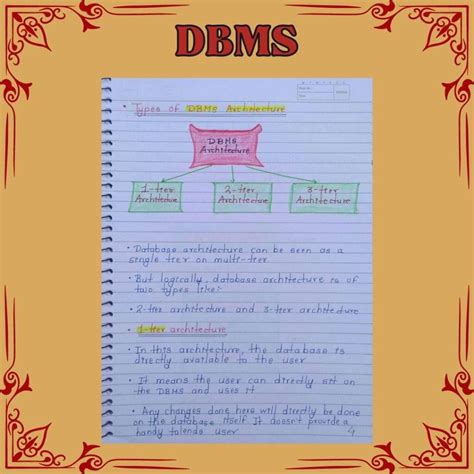 DBMS
• Types of DBMS Architecture
DBMS
Architecture
1-tier
Architecture
2-tier
Architecture
3-tier
Architecture
• Database architecture can be seen as a
single tier or multi-tier.
• But logically, database architecture is of
two types like:-
• 2-tier architecture and 3-tier architecture
• 1-tier architecture
• In this architecture, the database is
directly available to the user
• It means the user can directly sit on
the DBMS and uses it
• Any changes done here will directly be done
on the database itself. It doesn't provide a
handy to user
4